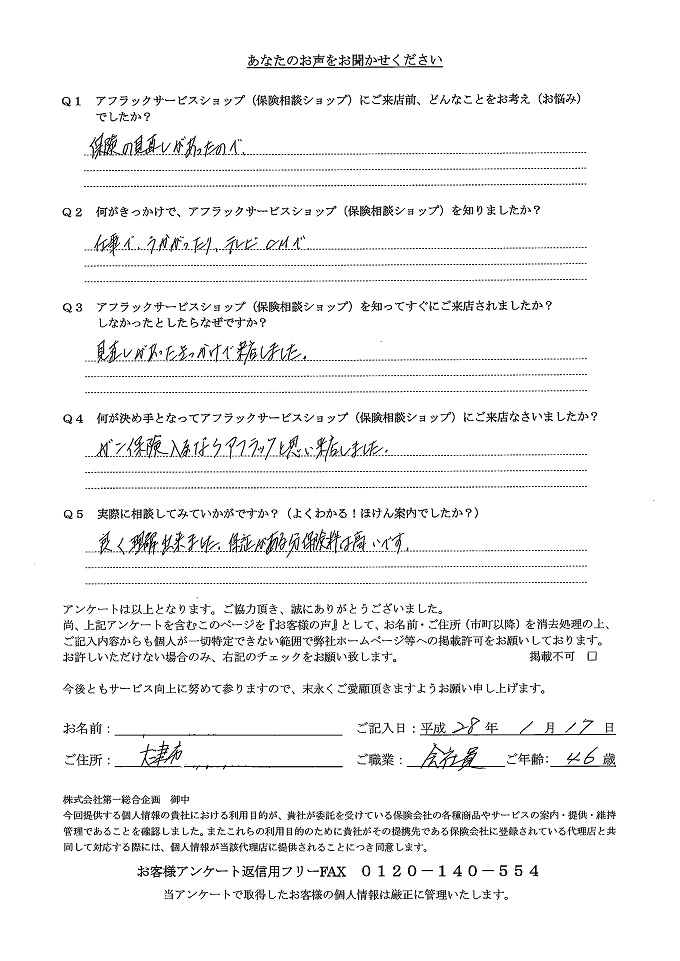 あなたのお声をお聞かせください
Q1 アフラックサービスショップ（保険相談ショップ）にご来店前、どんなことをお考え（お悩み）
でしたか？
保険の見直しがあったので、
Q2 何がきっかけで、アフラックサービスショップ（保険相談ショップ）を知りましたか？
仕事で、うかがったり、テレビCMで
Q3 アフラックサービスショップ（保険相談ショップ）を知ってすぐにご来店されましたか？
しなかったとしたらなぜですか？
見直しがあったきっかけで来店しました。
Q4 何が決め手となってアフラックサービスショップ（保険相談ショップ）にご来店なさいましたか？
ガン保険入るならアフラックと思い来店しました。
Q5 実際に相談してみていかがですか？（よくわかる！ほけん案内でしたか？）
良く理解出来ました。保証がある分保険料は高いです。
アンケートは以上となります。ご協力頂き、誠にありがとうございました。
尚、上記アンケートを含むこのページを『お客様の声』として、お名前・ご住所（市町以降）を消去処理の上、
ご記入内容からも個人が一切特定できない範囲で弊社ホームページ等への掲載許可をお願いしております。
お許しいただけない場合のみ、右記のチェックをお願い致します。 掲載不可 □
今後ともサービス向上に努めて参りますので、末永くご愛顧頂きますようお願い申し上げます。
お名前： ご記入日：平成 28 年 1 月 17 日
ご住所： 大津市 ご職業： 会社員 ご年齢： 46 歳
株式会社第一総合企画 御中
今回提供する個人情報の貴社における利用目的が、貴社が委託を受けている保険会社の各種商品やサービスの案内・提供・維持
管理であることを確認しました。またこれらの利用目的のために貴社がその提携先である保険会社に登録されている代理店と共
同して対応する際には、個人情報が当該代理店に提供されることにつき同意します。
お客様アンケート返信用フリーFAX 0120－140－554
当アンケートで取得したお客様の個人情報は厳正に管理いたします。